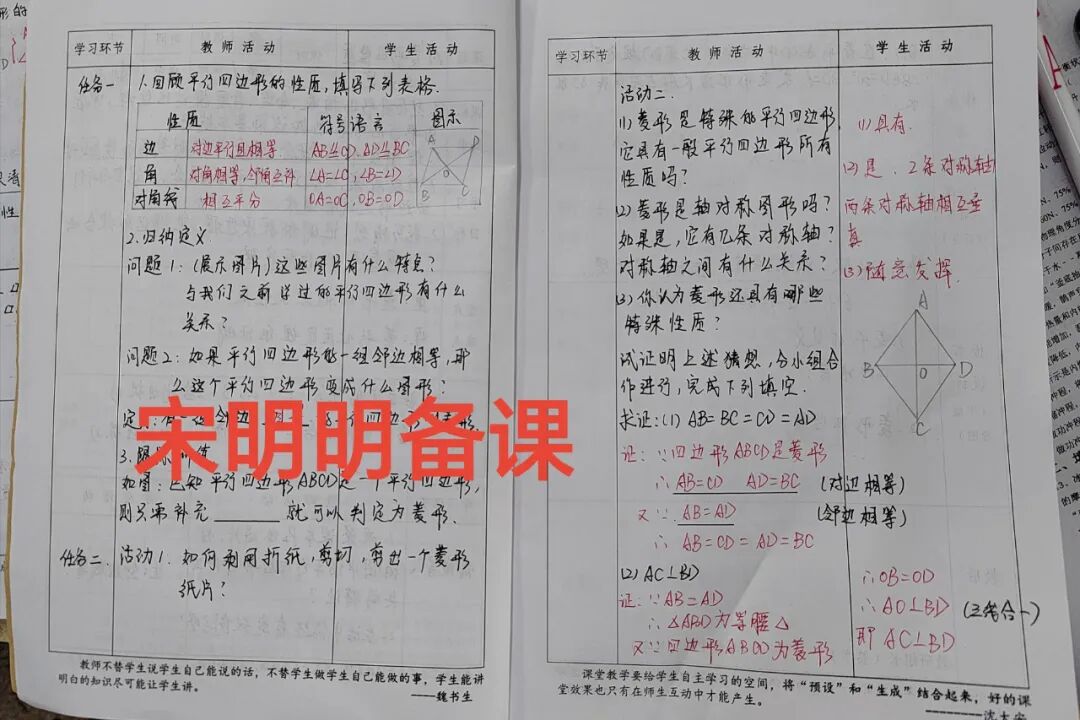 学习环节 教师活动 学生活动
任务一 1.回顾平行四边形的性质,填写下列表格.
性质 符号语言 图示
边 对边平行且相等. AB⫽CD, AD⫽BC
角 对角相等,邻角互补 ∠A=∠C, ∠B=∠D
对角线 相互平分 OA=OC, OB=OD
A D
O
B C
2.归纳定义
问题1:(展示图片)这些图片有什么特点?
与我们之前学过的平行四边形有什么
关系?
问题2:如果平行四边形能一组邻边相等,那
么这个平行四边形变成什么图形?
宋明明备课
如图:已知平行四边形ABCD是一个平行四边形,
则只需补充 就可以判定为菱形.
任务二 活动1.如何利用折纸,剪切,剪出一个菱形
纸片?
教师不替学生说学生自己能说的话,不替学生做学生自己能做的事,学生能讲
明白的知识尽可能让学生讲。
——魏书生
学习环节 教师活动 学生活动
活动二.
(1)菱形是特殊的平行四边形,
它具有一般平行四边形所有
性质吗?
(1)具有.
(2)菱形是轴对称图形吗?
如果是,它有几条对称轴?
对称轴之间有什么关系?
(2)是. 2条对称轴
两条对称轴相互垂
直
(3)你认为菱形还具有哪些
特殊性质?
(3)随意发挥.
试证明上述猜想,分小组合
作进行,完成下列填空.
A
B O D
C
求证:(1) AB=BC=CD=AD
证:∵四边形ABCD是菱形
∴ AB=CD AD=BC (对边相等)
又∵ AB=AD (邻边相等)
∴ AB=CD=AD=BC
(2) AC⊥BD
证:∵AB=AD
∴△ABD为等腰△
又∵四边形ABCD为菱形
∴OB=OD
∴AO⊥BD (三线合一)
即AC⊥BD
课堂教学要给学生自主学习的空间,将“预设”和“生成”结合起来,好的课
堂效果也只有在师生互动中才能产生。